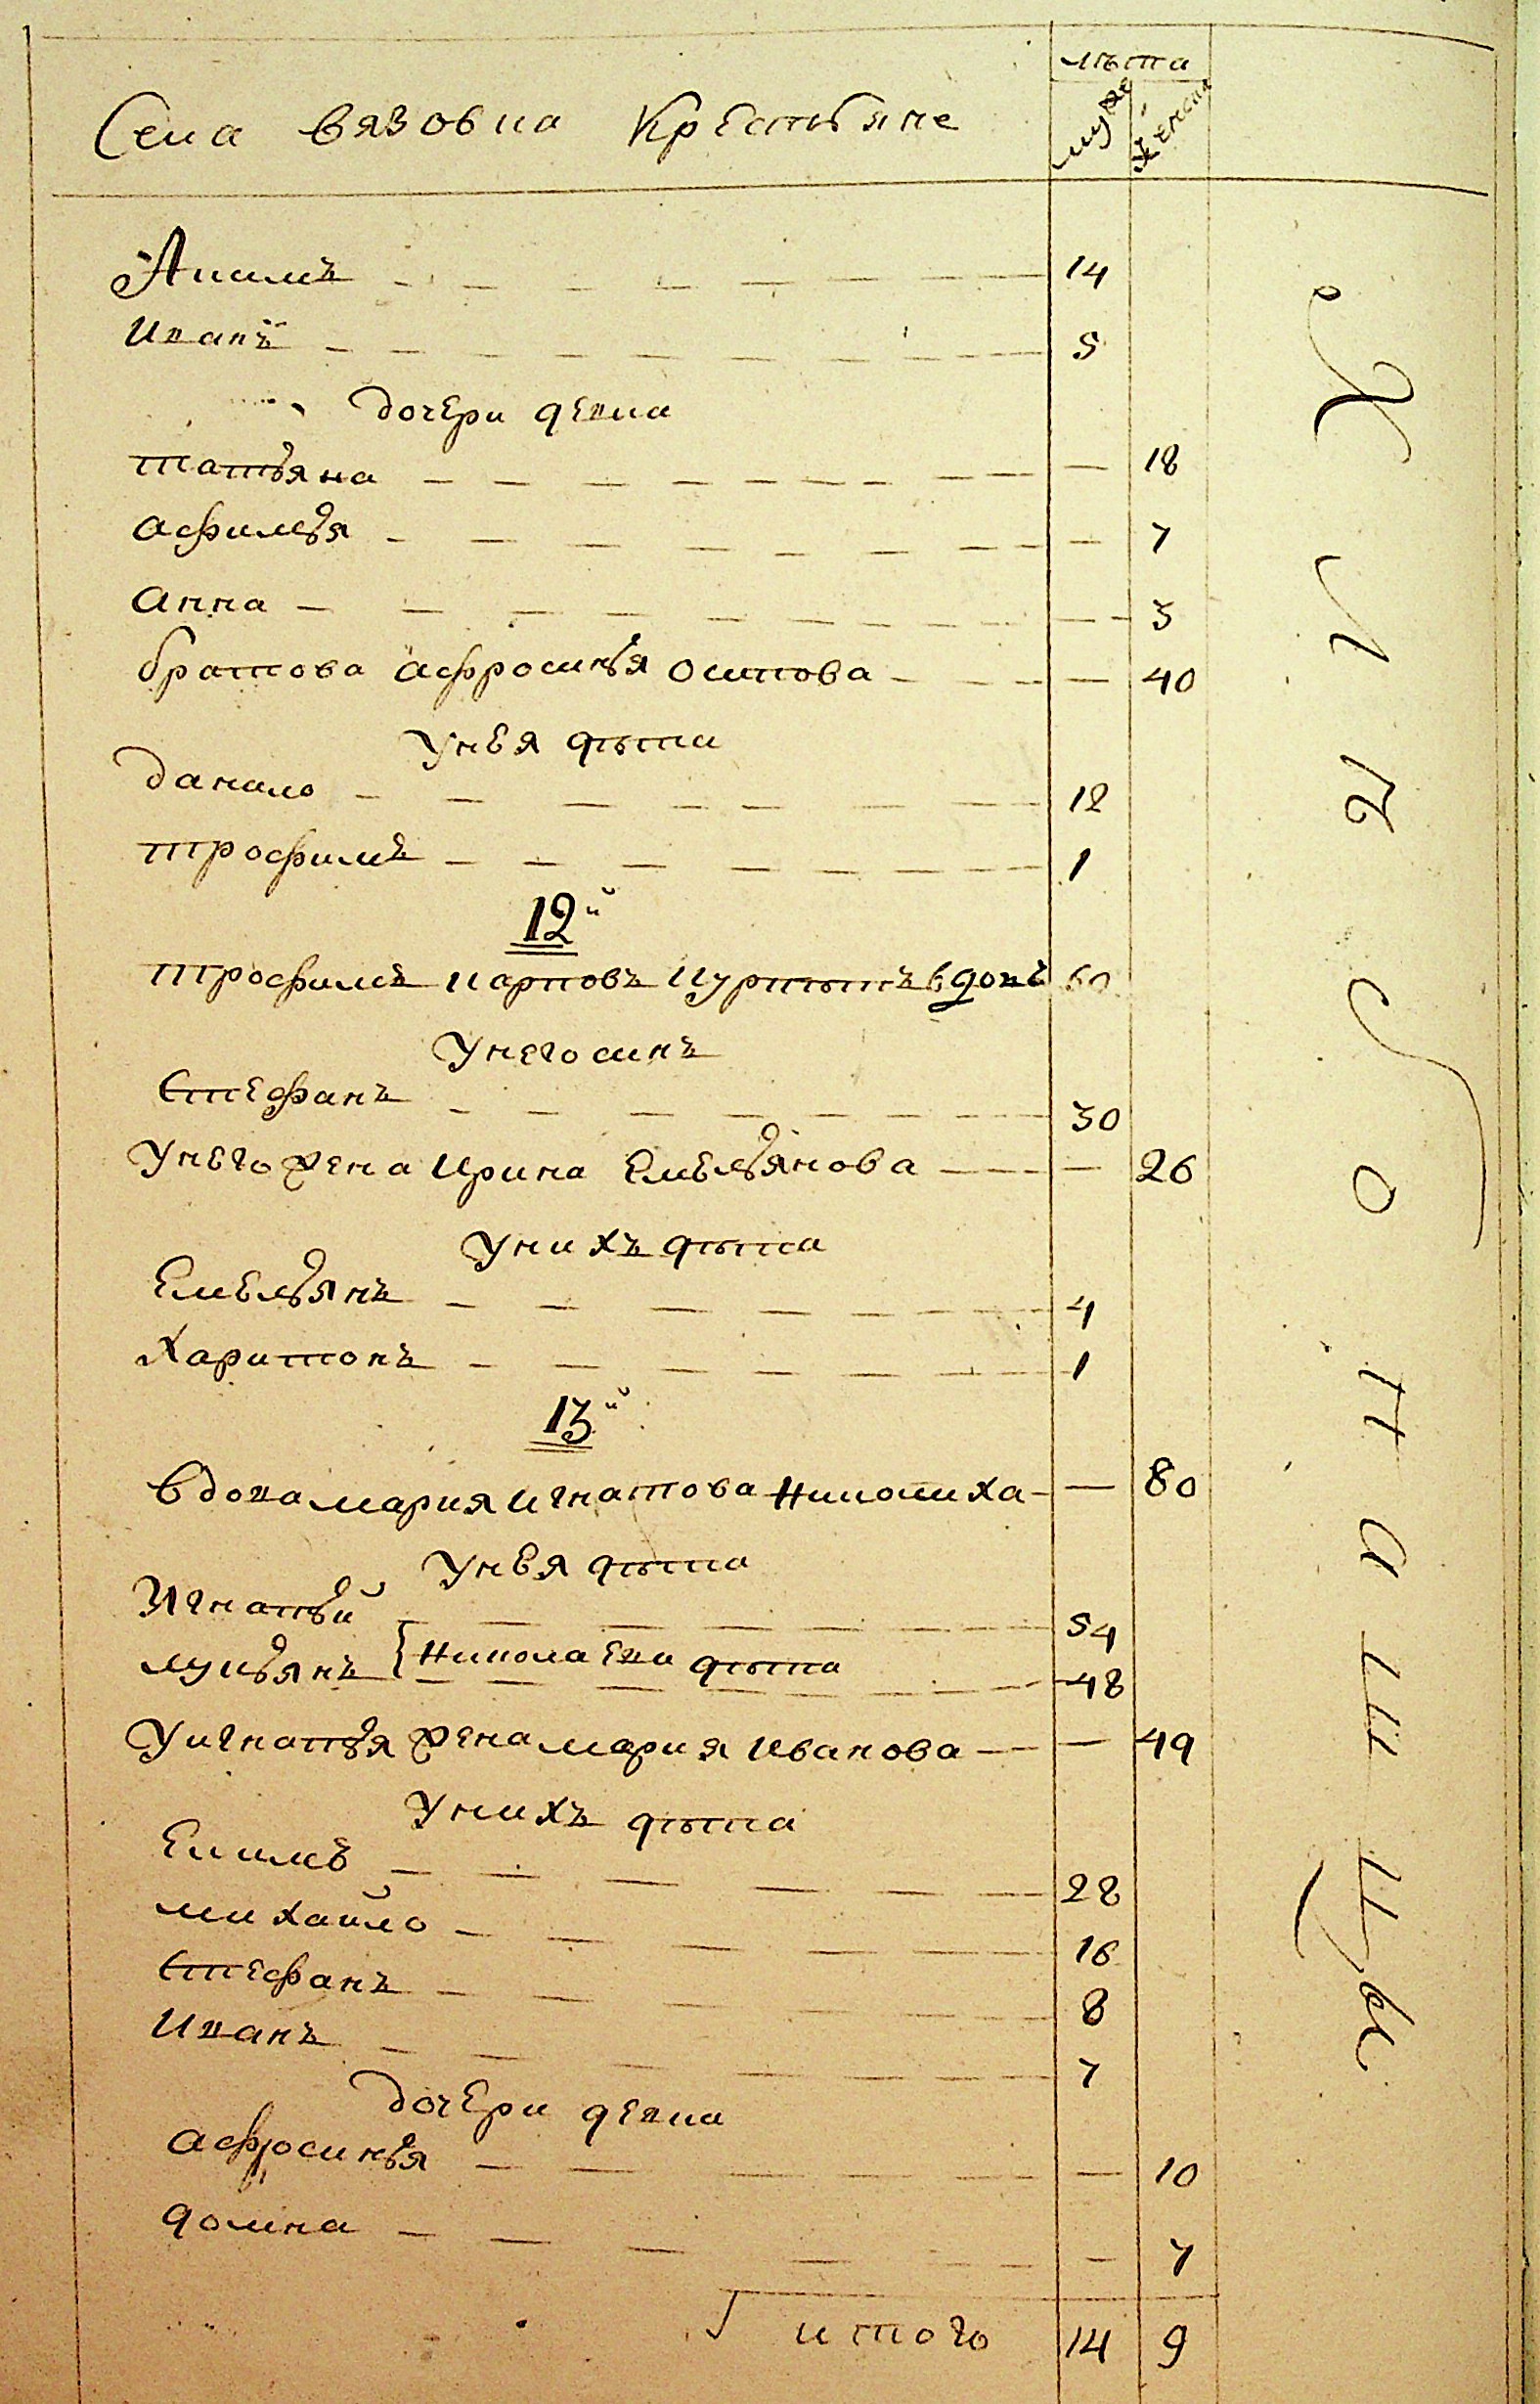 лѣта
Села Вязовка Крестьяне
муже
женска
Акимъ 14
Иванъ 5
дочери девки
татьяна — 18
афимья — 7
анна — 3
братова афросинья осипова — 40
Унея дѣти
данило 12
трофимъ 1
12й
трофимъ карповъ вдовъ 60
Унего синъ
Стефанъ 30
Унего жена Ирина Емельянова — 26
Унихъ дѣти
Емельянъ 4
Харитонъ 1
13й
вдова мария игнатова Никониха — 80
Унея дѣти
Игнатьй 54
лукьянъ { Николаеви дѣти 48
Уигнатья жена мария Иванова — 49
Унихъ дѣти
Екимъ 28
михайло 16
Стефанъ 8
Иванъ 7
дочери девки
афросинья — 10
домна — 7
итого 14 9